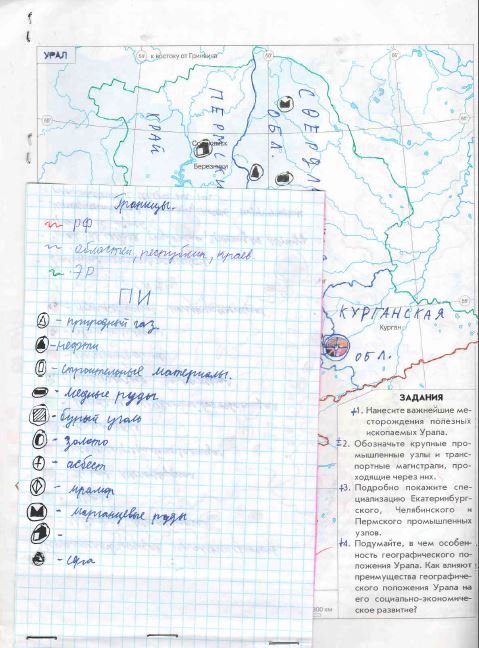 УРАЛ
54° к востоку от Гринвича
60°
66°
60°
ПЕРМСКИЙ
КРАЙ
СВЕРДЛ
ОБЛ.
Березники
КУРГАНСКАЯ
Курган
ОБЛ.
56°
Границы.
- РФ
- областей, республик, краев
- ЭР
ПИ
- природный газ.
- нефти
- строительные материалы.
- медные руды
- бурый уголь
- золото
- асбест
- мрамор
- марганцевые руды.
-
ЗАДАНИЯ
+1. Нанесите важнейшие ме-
сторождения полезных
ископаемых Урала.
±2. Обозначьте крупные про-
мышленные узлы и транс-
портные магистрали, про-
ходящие через них.
+3. Подробно покажите спе-
циализацию Екатеринбург-
ского, Челябинского и
Пермского промышленных
узлов.
+4. Подумайте, в чем особен-
ность географического по-
ложения Урала. Как влияют
преимущества географиче-
ского положения Урала на
его социально-экономиче-
ское развитие?
300 км